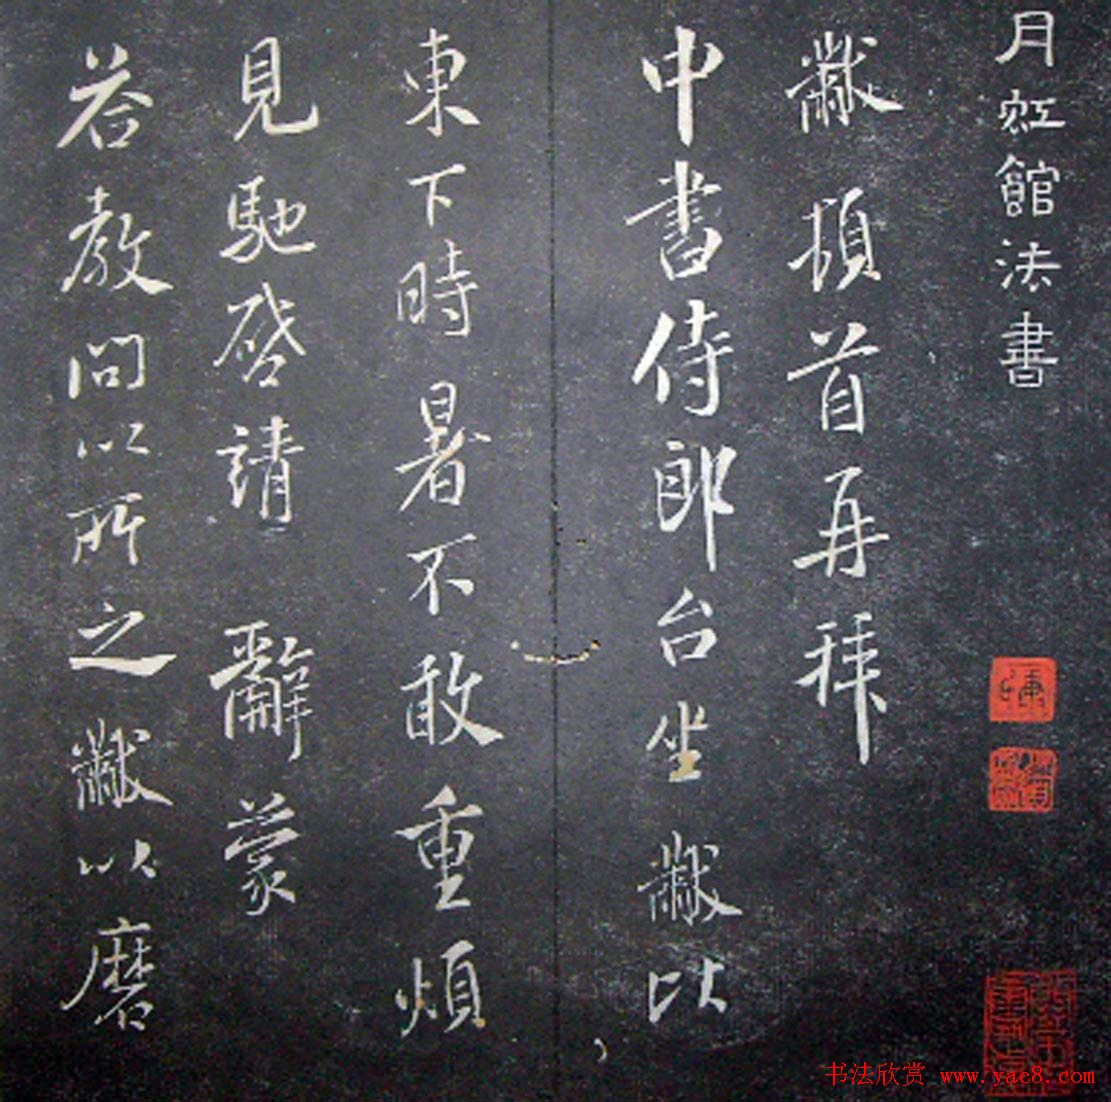 月虹館法書
黻頓首再拜
中書侍郎台坐黻以
東下時暑不敢重煩
見馳啓請 辭蒙
答教問以所之黻以磨
书法欣赏 www.yac8.com